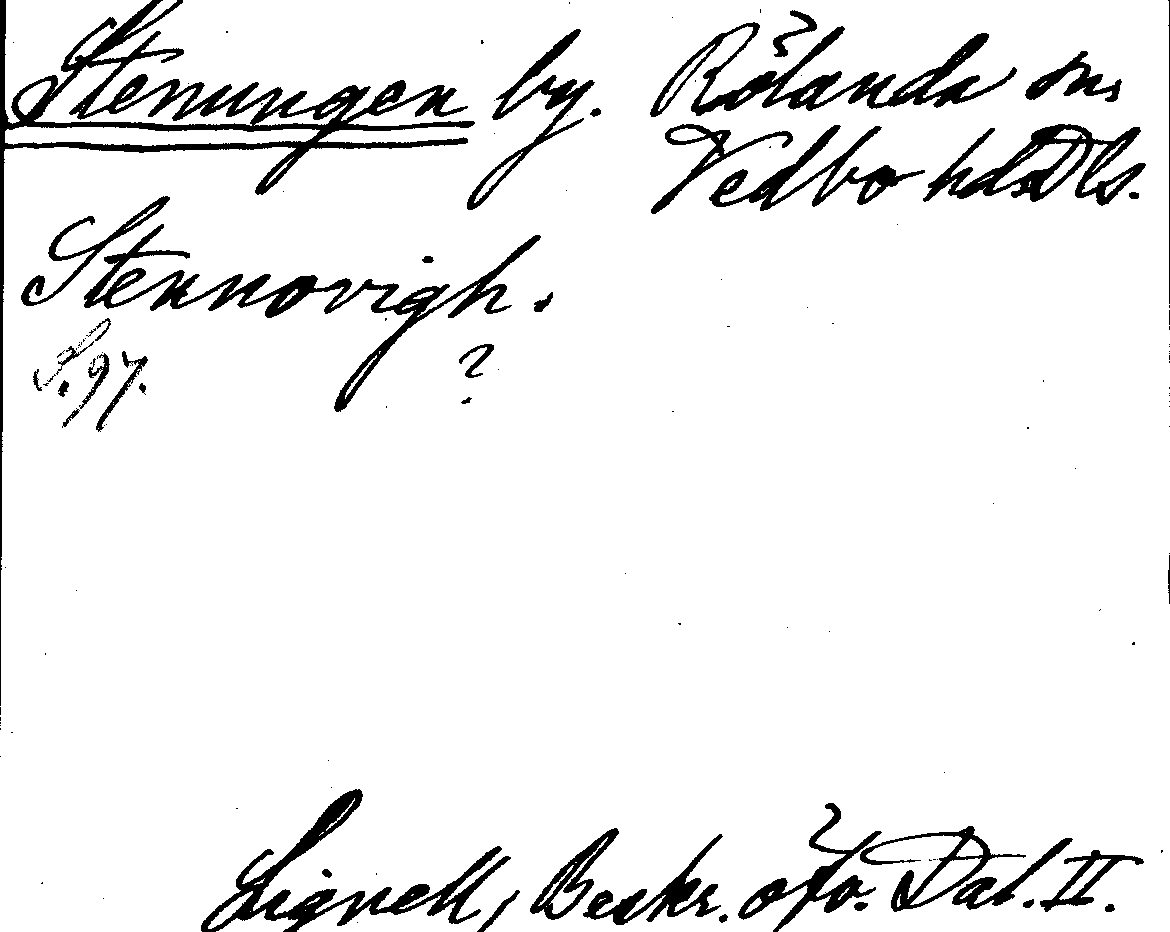 Stenungen by. Rölanda sn,
Vedbo hd. Dls.
Stennovigh.
S. 97. ?
Lignell, Beskr. öfv. Dal. II.